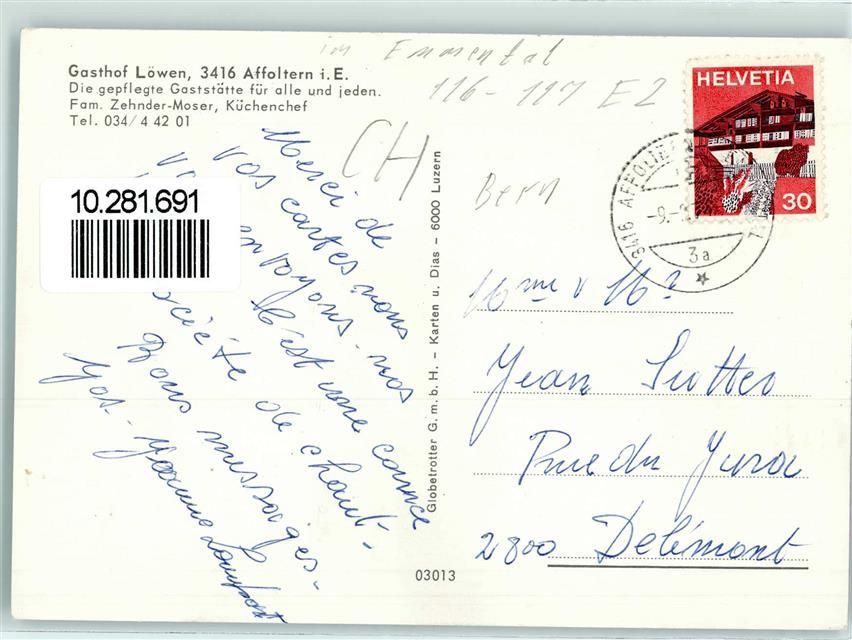 im Emmental
116-117 E2
Gasthof Löwen, 3416 Affoltern i.E.
Die gepflegte Gaststätte für alle und jeden.
Fam. Zehnder-Moser, Küchenchef
Tel. 034/4 42 01
CH
Bern
HELVETIA
30
3416 AFFOLTE
-9.-
3a
10.281.691
Merci de
vos cartes nous
envoyons nos
C'est une course
société de chant.
Bons messages.
Jeanne
Globetrotter G.m.b.H. – Karten u. Dias – 6000 Luzern
Mme & Mr
Jean Sutter
Rue du Jura
2800 Delémont
03013